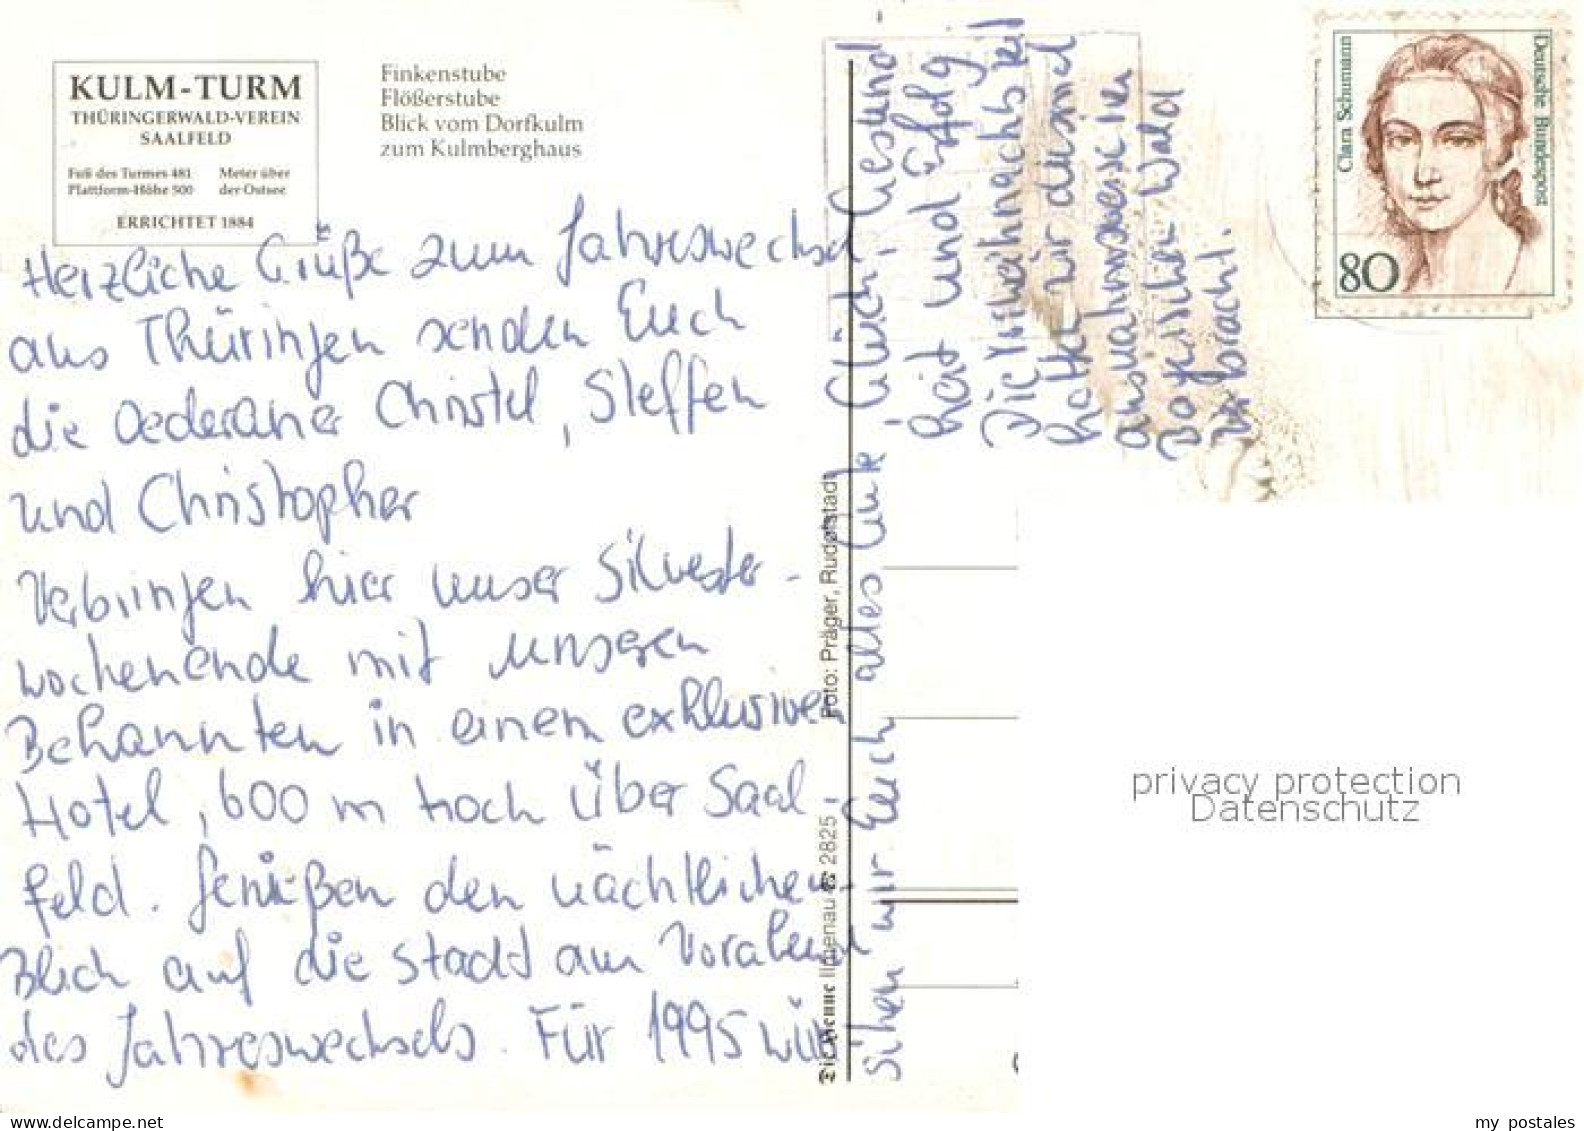 KULM-TURM
THÜRINGERWALD-VEREIN
SAALFELD
Fuß des Turmes 481 Meter über
Plattform-Höhe 500 der Ostsee
ERRICHTET 1884
Finkenstube
Flößerstube
Blick vom Dorfkulm
zum Kulmberghaus
Herzliche Grüße zum Jahreswechsel
aus Thüringen senden Euch
die Oederaner Christel, Steffen
und Christopher
Verbringen hier unser Silvester-
wochenende mit unseren
Bekannten in einem exklusiven
Hotel, 600 m hoch über Saal-
feld. Genießen den nächtlichen
Blick auf die Stadt am Vorabend
des Jahreswechsels. Für 1995 wün-
schen wir Euch alles Gute, Glück, Gesund-
heit und Erfolg
Die Weihnachtszeit
hatten wir diesmal
ausnahmsweise im
Wald
verbracht.
Die Henne Ilmenau 2825
Foto: Präger, Rudolstadt
Clara Schumann
Deutsche Bundespost
80
privacy protection
Datenschutz
my postales